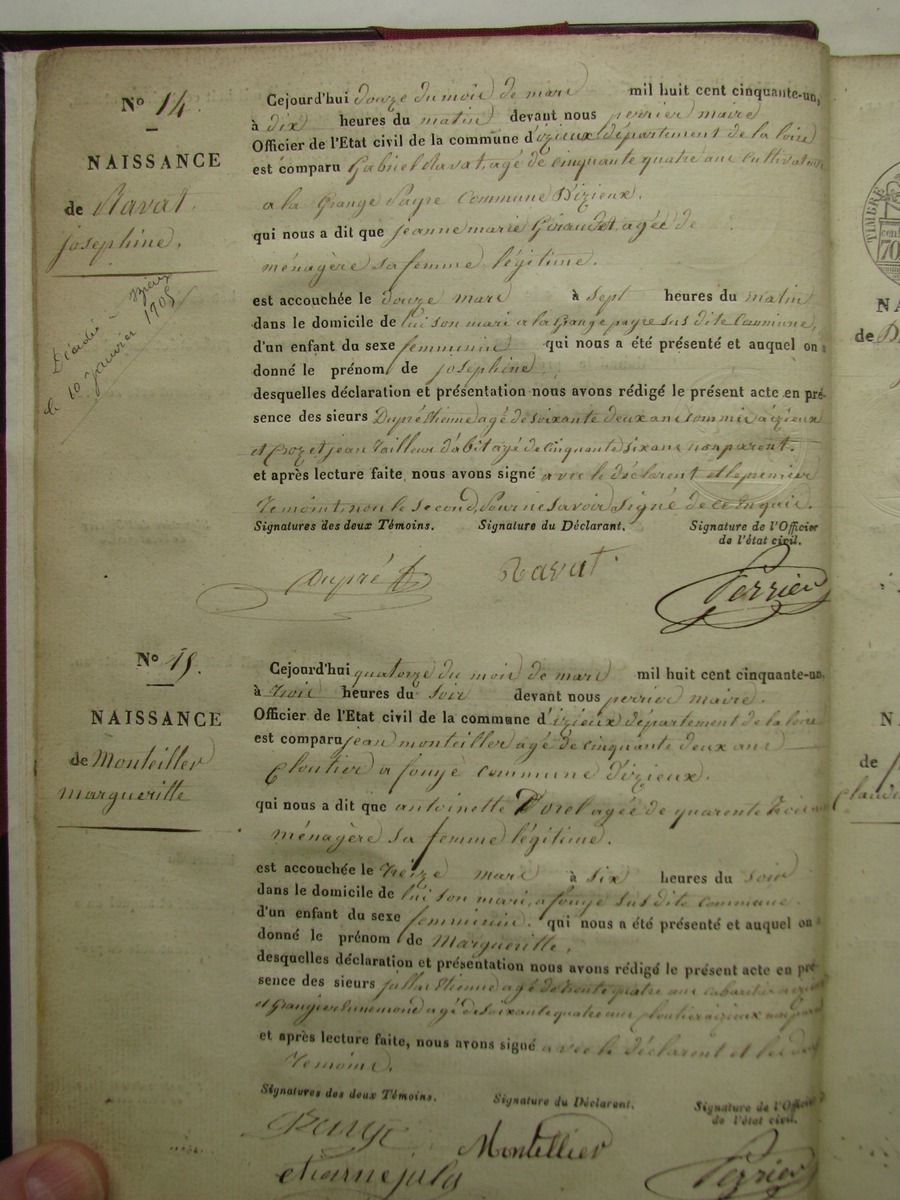 N° 14.
NAISSANCE
de Ravat
josephine.
Décédée à Izieux
le 10 janvier 1905
Cejourd'hui douze du mois de mars mil huit cent cinquante-un,
à dix heures du matin devant nous perrier maire
Officier de l'Etat civil de la commune d'izieux département de la loire
est comparu Gabriel Ravat, agé de cinquante quatre ans cultivateur
a la Grange Payre Commune D'izieux.
qui nous a dit que jeanne marie Giraudet agée de
ménagère sa femme légitime.
est accouchée le douze mars à sept heures du matin
dans le domicile de lui son mari a la Grange payre sus dite Commune,
d'un enfant du sexe femminin qui nous a été présenté et auquel on
donné le prénom de josephine
desquelles déclaration et présentation nous avons rédigé le présent acte en pré-
sence des sieurs Dupré Etienne agé de soixante deux ans commis a izieux
et jean Tailleur d'abit agé de cinquante six ans non parent.
et après lecture faite, nous avons signé avec le déclarent et le premier
Temoint, non le second, pour ne savoir signé de ce
Signatures des deux Témoins. Signature du Déclarant. Signature de l'Officier
de l'état civil.
Dupré Ravat Perrier
N° 15.
NAISSANCE
de Monteiller
margueritte
Cejourd'hui quatorze du mois de mars mil huit cent cinquante-un,
à trois heures du soir devant nous perrier maire.
Officier de l'Etat civil de la commune d'izieux département de la loire
est comparu jean monteiller agé de cinquante deux ans
Cloutier a fouyé commune d'izieux.
qui nous a dit que antoinette Dorel agée de quarente trois ans
ménagère sa femme légitime.
est accouchée le treize mars à six heures du soir
dans le domicile de lui son mari, a fouyé sus dite commune.
d'un enfant du sexe femminin. qui nous a été présenté et auquel on
donné le prénom de Margueritte.
desquelles déclaration et présentation nous avons rédigé le présent acte en pré-
sence des sieurs Etienne agé de trente quatre ans cabaretier a izieux
et Grangier Ennemond agé de soixante quatre ans cloutier a izieux non parent
et après lecture faite, nous avons signé avec le déclarent et les deux
Temoins.
Signatures des deux Témoins. Signature du Déclarant. Signature de l'Officier
de l'état civil.
Montellier Perrier
TIMBRE
70
de
N
de
Claude